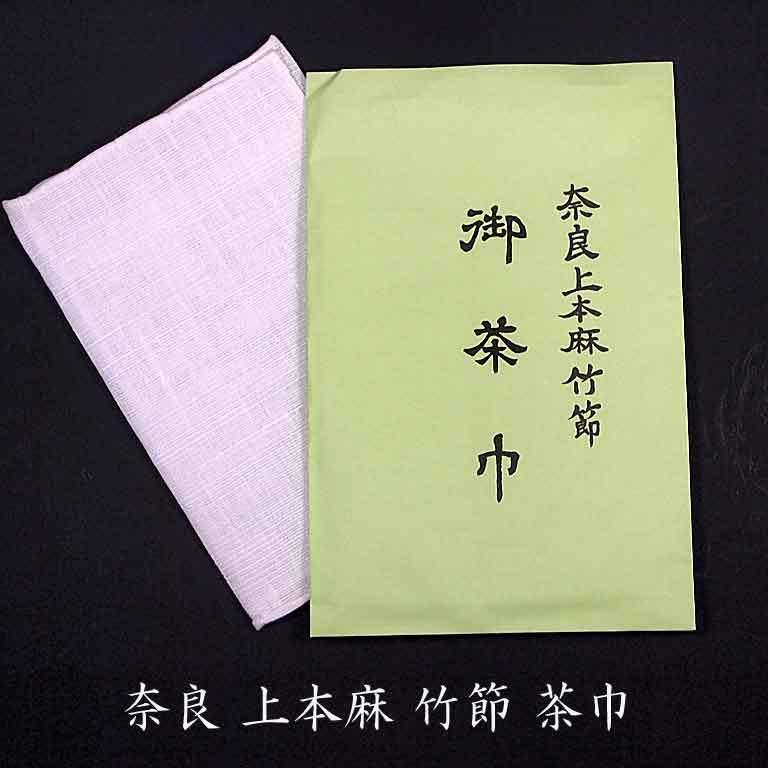 奈良上本麻竹節
御茶巾
奈良 上本麻 竹節 茶巾